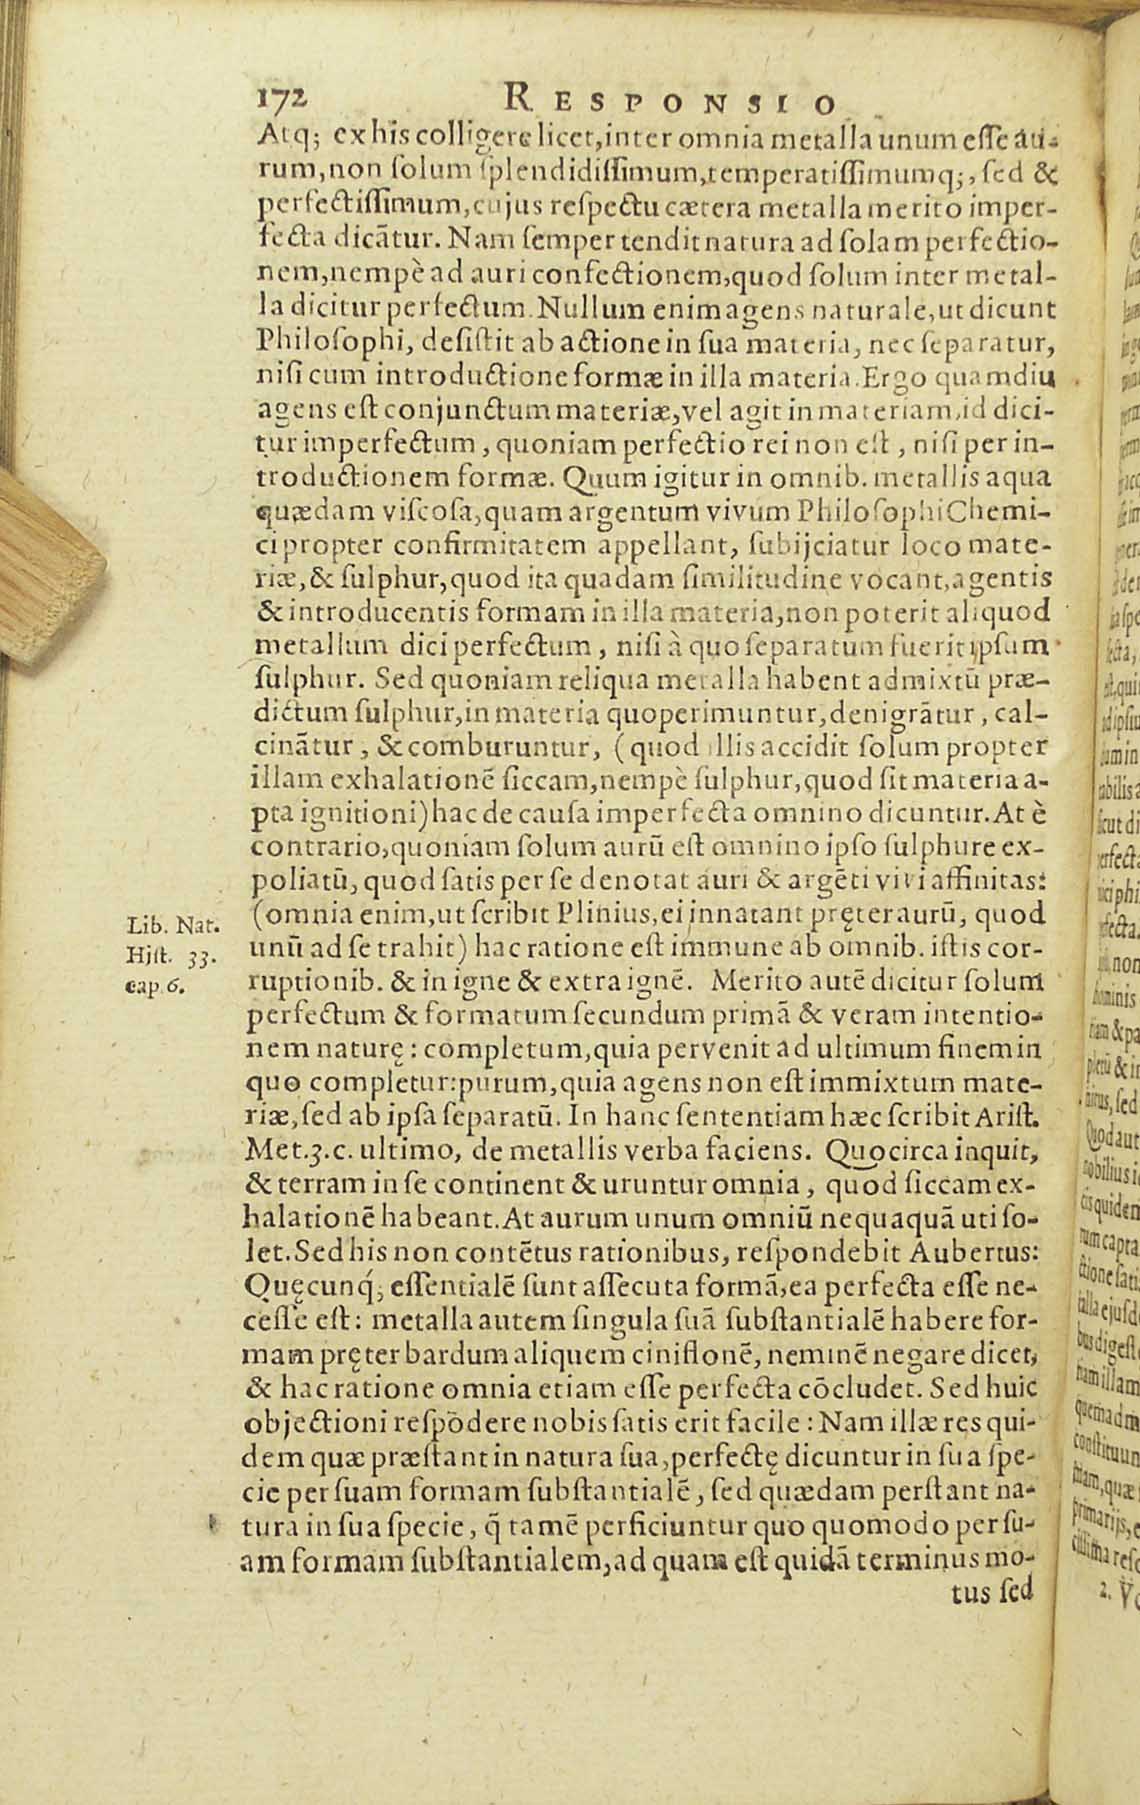 172 RESPONSIO
Atq; ex his colligere licet, inter omnia metalla unum esse au-
rum, non solum splendidissimum, temperatissimumq;, sed &
perfectissimum, cujus respectu cætera metalla merito imper-
fecta dicātur. Nam semper tendit natura ad solam perfectio-
nem, nempè ad auri confectionem, quod solum inter metal-
la dicitur perfectum. Nullum enim agens naturale, ut dicunt
Philosophi, desistit ab actione in sua materia, nec separatur,
nisi cum introductione formæ in illa materia. Ergo quamdiu
agens est conjunctum materiæ, vel agit in materiam, id dici-
tur imperfectum, quoniam perfectio rei non est, nisi per in-
troductionem formæ. Quum igitur in omnib. metallis aqua
quædam viscosa, quam argentum vivum Philosophi Chemi-
ci propter confirmitatem appellant, subijciatur loco mate-
riæ, & sulphur, quod ita quadam similitudine vocant, agentis
& introducentis formam in illa materia, non poterit aliquod
metallum dici perfectum, nisi à quo separatum fuerit ipsum
sulphur. Sed quoniam reliqua metalla habent admixtū præ-
dictum sulphur, in materia quo perimuntur, denigrātur, cal-
cinātur, & comburuntur, (quod illis accidit solum propter
illam exhalationē siccam, nempè sulphur, quod sit materia a-
pta ignitioni) hac de causa imperfecta omnino dicuntur. At è
contrario, quoniam solum aurū est omnino ipso sulphure ex-
poliatū, quod satis per se denotat auri & argēti vivi affinitas:
(omnia enim, ut scribit Plinius, ei innatant pręter aurū, quod
unū ad se trahit) hac ratione est immune ab omnib. istis cor-
ruptionib. & in igne & extra ignē. Merito autē dicitur solum
perfectum & formatum secundum primā & veram intentio-
nem naturę: completum, quia pervenit ad ultimum finem in
quo completur: purum, quia agens non est immixtum mate-
riæ, sed ab ipsa separatū. In hanc sententiam hæc scribit Arist.
Met. 3. c. ultimo, de metallis verba faciens. Quocirca inquit,
& terram in se continent & uruntur omnia, quod siccam ex-
halationē habeant. At aurum unum omniū nequaquā uti so-
let. Sed his non contētus rationibus, respondebit Aubertus:
Quęcunq́; essentialē sunt assecuta formā, ea perfecta esse ne-
cesse est: metalla autem singula suā substantialē habere for-
mam pręter bardum aliquem ciniflonē, neminē negare dicet,
& hac ratione omnia etiam esse perfecta cōcludet. Sed huic
objectioni respōdere nobis satis erit facile: Nam illæ res qui-
dem quæ præstant in natura sua, perfectę dicuntur in sua spe-
cie per suam formam substantialē, sed quædam perstant na-
tura in sua specie, q̄ tamē perficiuntur quo quomodo per su-
am formam substantialem, ad quam est quidā terminus mo-
tus sed
Lib. Nat.
Hist. 33.
cap. 6.